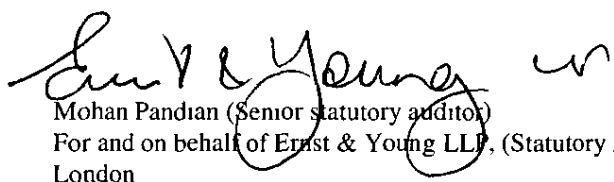 Ernst & Young LLP
Mohan Pandian (Senior statutory auditor)
For and on behalf of Ernst & Young LLP, (Statutory
London